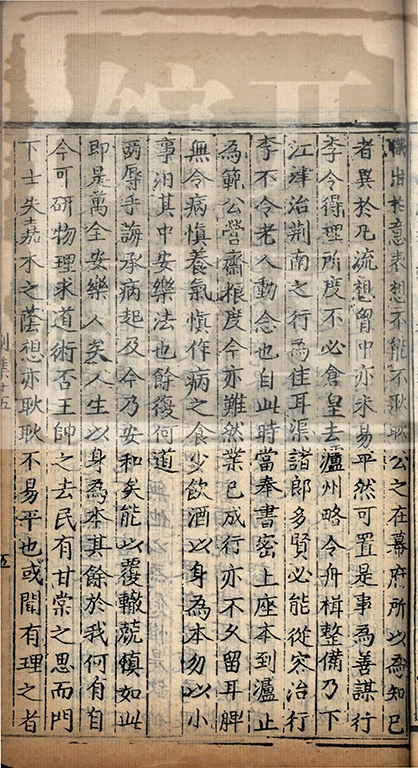 職治於意表想不能不耿耿公之在幕府所以為知已
者異於凡流想胷中亦未易平然可置是事為善謀行
李令得理所度不必倉皇去瀘州略令舟楫整備乃下
江津治荆南之行為佳耳渠諸郎多賢必能從容治行
李不令老人動念也自此時當奉書密上座本到瀘止
為範公營齋粮度今亦難然業已成行亦不久留耳脾
無令病慎養氣慎作病之食少飲酒以身為本勿以小
事汨其中安樂法也餘復何道
兩辱手誨承病起及今乃安和矣能以覆轍兢慎如此
即是萬全安樂人矣人生以身為本其餘於我何有自
今可研物理求道術否王帥之去民有甘棠之思而門
下士失嘉木之蔭想亦耿耿不易平也或聞有理之者
五